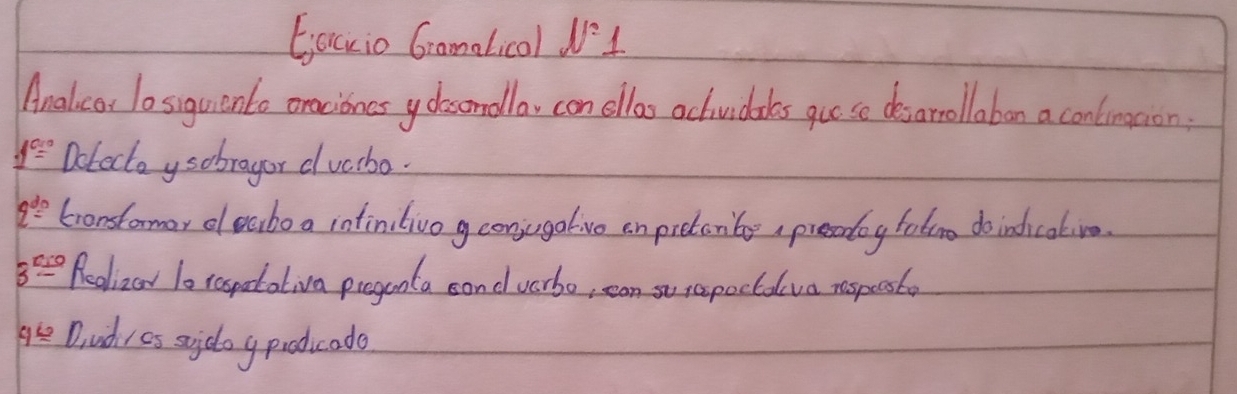 Ejercicio Gramatical Nº 1
Analicar la siguiente oraciónes y desarrollar con ellas actividades que se desarrollaban a continación:
1ero Detecta y sobrayar el verbo.
2do transformar el verbo a infinitivo y conjugativo en pretarito, presente y futuro de indicativo.
3ero Realizar la respetativa pregunta con el verbo, con su respectativa respuesta
4to Dividir es sujeto y predicado